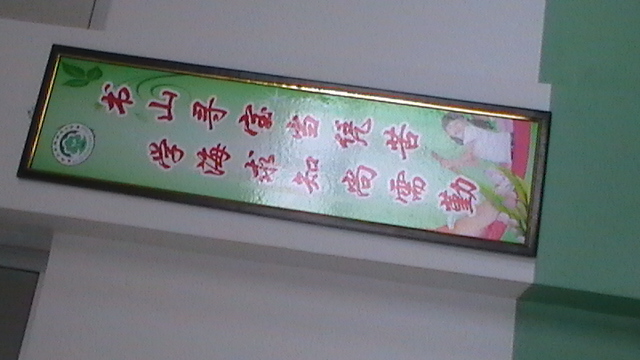 书山寻宝当凭苦
学海求知尚需勤